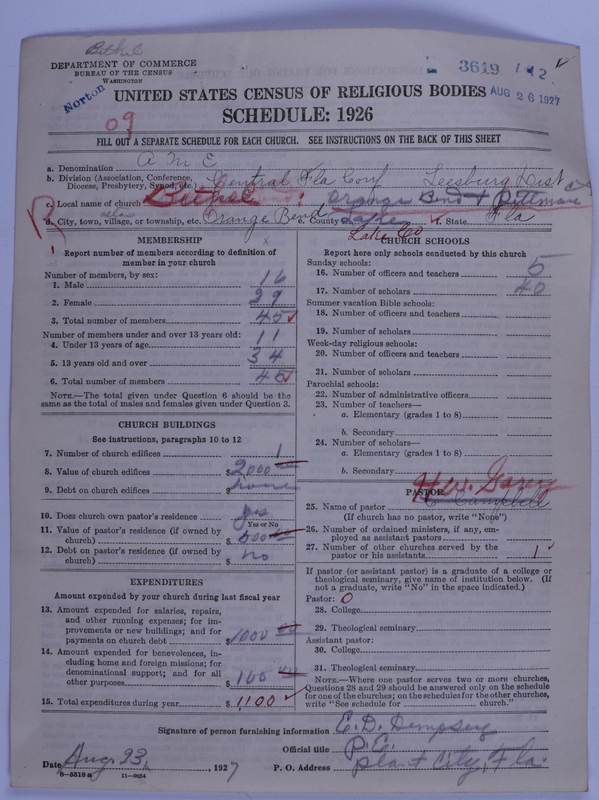 Bethel
DEPARTMENT OF COMMERCE
BUREAU OF THE CENSUS
WASHINGTON
3619 1 2
Norton
UNITED STATES CENSUS OF RELIGIOUS BODIES
AUG 26 1927
SCHEDULE: 1926
09
FILL OUT A SEPARATE SCHEDULE FOR EACH CHURCH. SEE INSTRUCTIONS ON THE BACK OF THIS SHEET
a. Denomination A M E
b. Division (Association, Conference, Diocese, Presbytery, Synod, etc.) Central Fla Conf Leesburg Dist
c. Local name of church Bethel Orange Bend & Pittman
d. City, town, village, or township, etc. Orange Bend e. County Lake f. State Fla
Lake Co
MEMBERSHIP
Report number of members according to definition of
member in your church
Number of members, by sex:
1. Male 16
2. Female 29
3. Total number of members 45
Number of members under and over 13 years old:
4. Under 13 years of age 11
5. 13 years old and over 34
6. Total number of members 45
NOTE.—The total given under Question 6 should be the
same as the total of males and females given under Question 3.
CHURCH BUILDINGS
See instructions, paragraphs 10 to 12
7. Number of church edifices 1
8. Value of church edifices $2000 00
9. Debt on church edifices $ none
10. Does church own pastor's residence yes
Yes or No
11. Value of pastor's residence (if owned by
church) $500 00
12. Debt on pastor's residence (if owned by
church) $ no
EXPENDITURES
Amount expended by your church during last fiscal year
13. Amount expended for salaries, repairs,
and other running expenses; for im-
provements or new buildings; and for
payments on church debt $1000 00
14. Amount expended for benevolences, in-
cluding home and foreign missions; for
denominational support; and for all
other purposes $100 00
15. Total expenditures during year $1,100
CHURCH SCHOOLS
Report here only schools conducted by this church
Sunday schools:
16. Number of officers and teachers 5
17. Number of scholars 40
Summer vacation Bible schools:
18. Number of officers and teachers
19. Number of scholars
Week-day religious schools:
20. Number of officers and teachers
21. Number of scholars
Parochial schools:
22. Number of administrative officers
23. Number of teachers—
a. Elementary (grades 1 to 8)
b. Secondary
24. Number of scholars—
a. Elementary (grades 1 to 8)
b. Secondary
PASTOR
25. Name of pastor Campbell
(If church has no pastor, write "None")
26. Number of ordained ministers, if any, em-
ployed as assistant pastors
27. Number of other churches served by the
pastor or his assistants 1
If pastor (or assistant pastor) is a graduate of a college or
theological seminary, give name of institution below. (If
not a graduate, write "No" in the space indicated.)
Pastor: 0
28. College
29. Theological seminary
Assistant pastor:
30. College
31. Theological seminary
NOTE.—Where one pastor serves two or more churches,
Questions 28 and 29 should be answered only on the schedule
for one of the churches; on the schedules for the other churches
write "See schedule for church."
Signature of person furnishing information E. D. Dempsey
Official title P.E.
Date Aug. 23, 1927 P. O. Address Plant City, Fla.
8—5518 a 11—9054